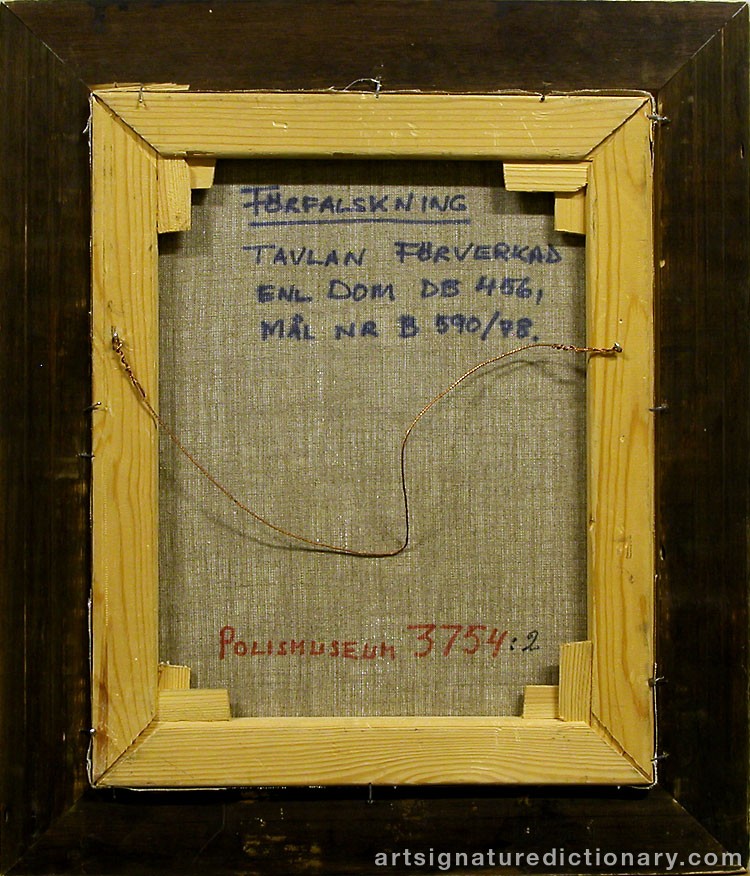 FÖRFALSKNING
TAVLAN FÖRVERKAD
ENL DOM DB 456,
MÅL NR B 590/78.
POLISMUSEUM 3754:2
artsignaturedictionary.com